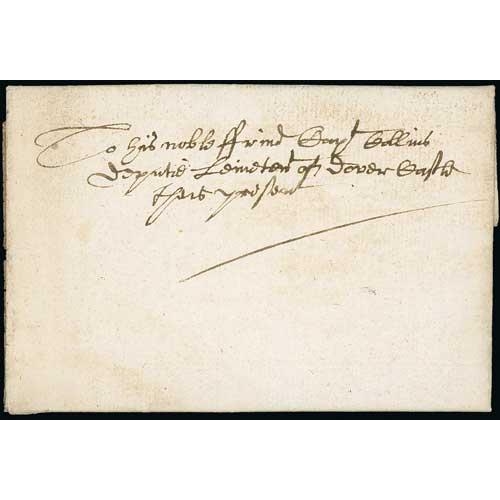 To his noble ffrind Capt Collins
deputie Leiuten of dover Castle
theis present